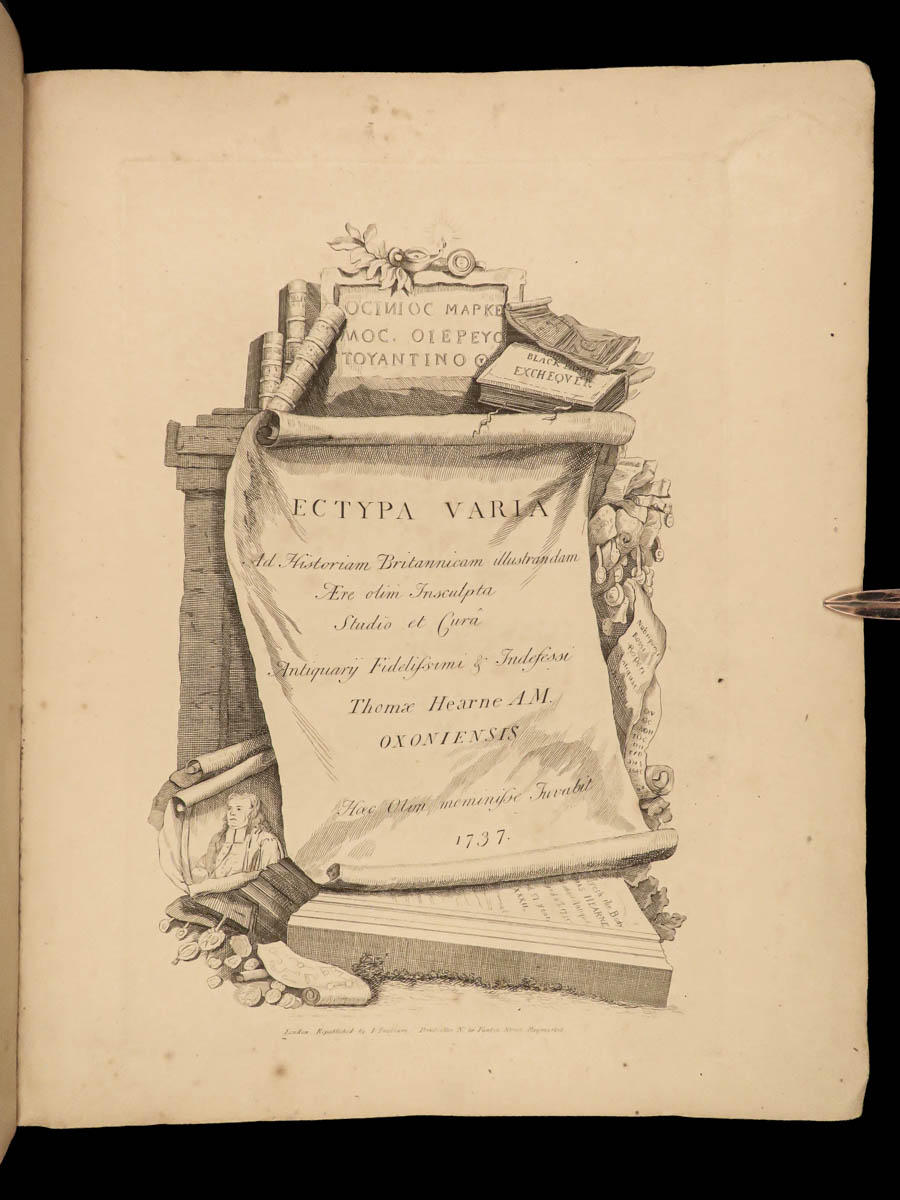 ΟCΤΙΝΙΟC ΜΑΡΚΕ
ΜΟC. ΟΙΕΡΕΥΟ
ΤΟΥΑΝΤΙΝΟΟ
BLACK
EXCHEQVER
ECTYPA VARIA
Ad Historiam Britannicam illustrandam
Ære olim Insculpta
Studio et Curâ
Antiquarij Fidelissimi & Indefessi
Thomæ Hearne A.M.
OXONIENSIS
Hæc Olim meminisse Juvabit
1737.
the Body
HEARNE
London Republished by Printseller No. Street Haymarket